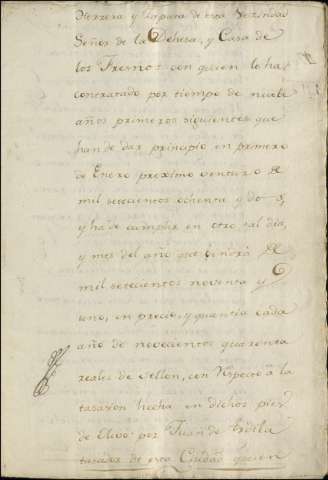 Herrera y Clapara de esta Vecindad
Señor de la Dehesa, y Casa de
los Fresnos con quien lo ha
contratado por tiempo de nueve
años primeros siguientes que
han de dar principio en primero
de Enero proximo venturo de
mil setecientos ochenta y dos
y ha de cumplir en otro tal dia,
y mes del año que vendrá de
mil setecientos noventa y
uno, en precio, y quantia cada
año de novecientos quarenta
reales de vellon, con respecto a la
tasacion hecha en dichos pies
de Olivo por Juan de Ardila
tasador de esta Ciudad quien